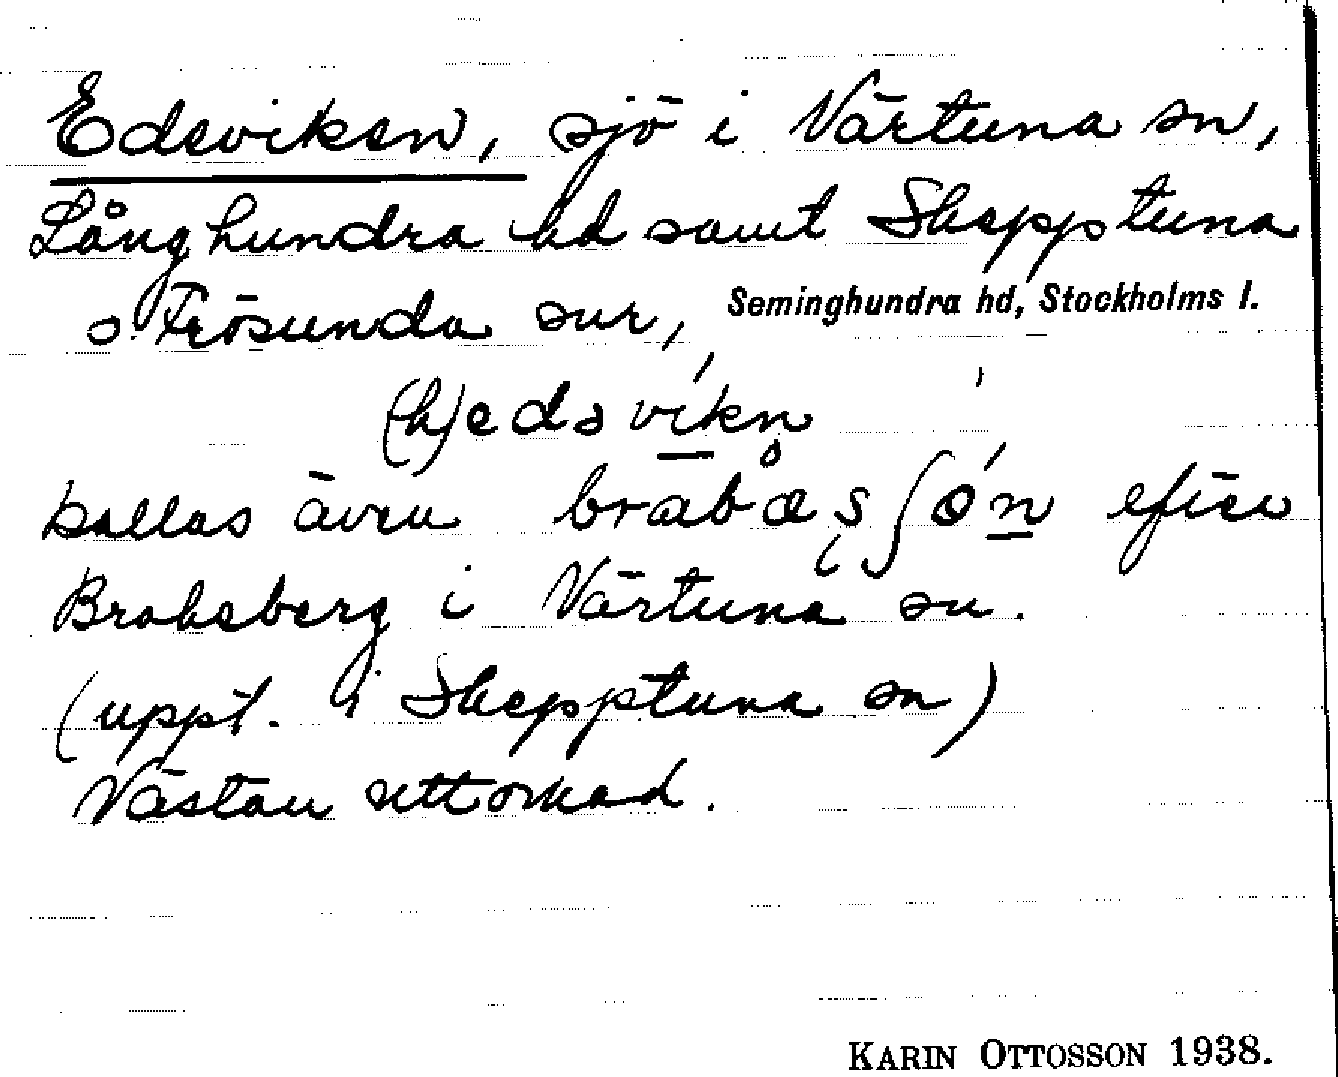 Edsviken, sjö i Vårtuna sn,
Långhundra hd samt Skepptuna
o. Frösunda snr, Seminghundra hd, Stockholms l.
(h)edsvíkn
kallas även efter
Brahsberg i Vårtuna sn.
(uppt. i Skepptuna sn)
Nästan uttorkad.
KARIN OTTOSSON 1938.